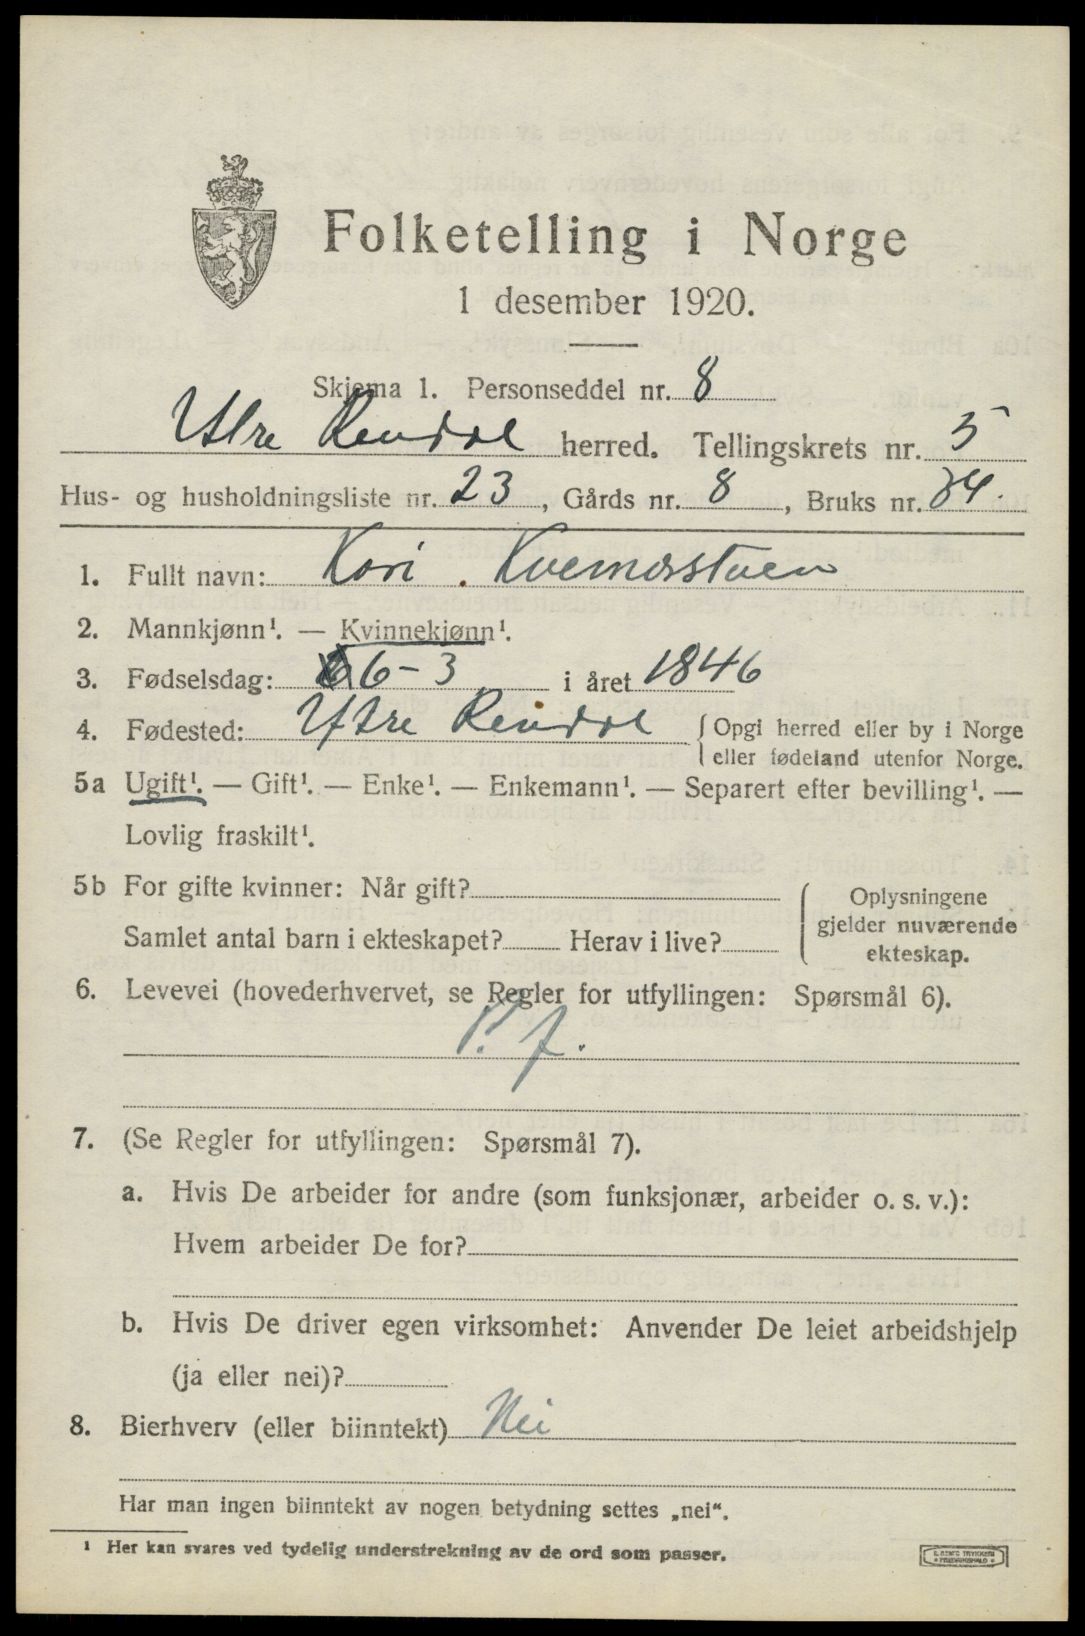 Folketelling i Norge
1 desember 1920.
Skjema 1. Personseddel nr. 8
Ytre Rendal herred. Tellingskrets nr. 5
Hus- og husholdningsliste nr. 23, Gårds nr. 8, Bruks nr. 34.
1. Fullt navn: Kari Kvernesstuen
2. Mannkjønn¹. — Kvinnekjønn¹.
3. Fødselsdag: 6-3 i året 1846
4. Fødested: Ytre Rendal { Opgi herred eller by i Norge
eller fødeland utenfor Norge.
5a Ugift¹. — Gift¹. — Enke¹. — Enkemann¹. — Separert efter bevilling¹. —
Lovlig fraskilt¹.
5b For gifte kvinner: Når gift?
Samlet antal barn i ekteskapet? Herav i live?
{ Oplysningene
gjelder nuværende
ekteskap.
6. Levevei (hovederhvervet, se Regler for utfyllingen: Spørsmål 6).
7. (Se Regler for utfyllingen: Spørsmål 7).
a. Hvis De arbeider for andre (som funksjonær, arbeider o. s. v.):
Hvem arbeider De for?
b. Hvis De driver egen virksomhet: Anvender De leiet arbeidshjelp
(ja eller nei)?
8. Bierhverv (eller biinntekt) Nei
Har man ingen biinntekt av nogen betydning settes „nei“.
¹ Her kan svares ved tydelig understrekning av de ord som passer.